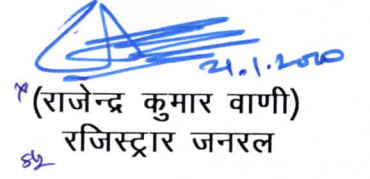 21.1.2020
(राजेन्द्र कुमार वाणी)
रजिस्ट्रार जनरल